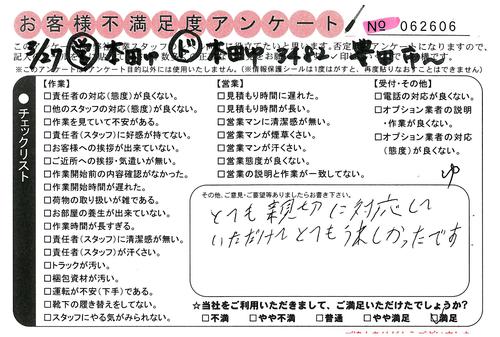 お客様不満足度アンケート
№ 062606
3/27 本田
本田
【作業】
□責任者の対応(態度)が良くない。
□他のスタッフの対応(態度)が良くない。
□作業を見ていて不安がある。
□責任者(スタッフ)に好感が持てない。
□お客様への挨拶が出来ていない。
□ご近所への挨拶・気遣いが無い。
□作業開始前の内容確認がなかった。
□作業開始時間が遅れた。
□荷物の取り扱いが雑である。
□お部屋の養生が出来ていない。
□作業時間が長すぎる。
□責任者(スタッフ)に清潔感が無い。
□責任者(スタッフ)が汗くさい。
□トラックが汚い。
□梱包資材が汚い。
□運転が不安(下手)である。
□靴下の履き替えをしてない。
□スタッフにやる気がみられない。
【営業】
□見積もり時間に遅れた。
□見積もり時間が長い。
□営業マンに清潔感が無い。
□営業マンが煙草くさい。
□営業マンが汗くさい。
□営業態度が良くない。
□営業の説明と作業が一致してない。
【受付・その他】
□電話の対応が良くない。
□オプション業者の説明
・作業が良くない。
□オプション業者の対応
(態度)が良くない。
チェックリスト
その他、ご意見・ご要望等ありましたらお書き下さい。
とても親切に対応して
いただけてとてもうれしかったです
☆当社をご利用いただきまして、ご満足いただけたでしょうか?
□不満 □やや不満 □普通 □やや満足 □満足